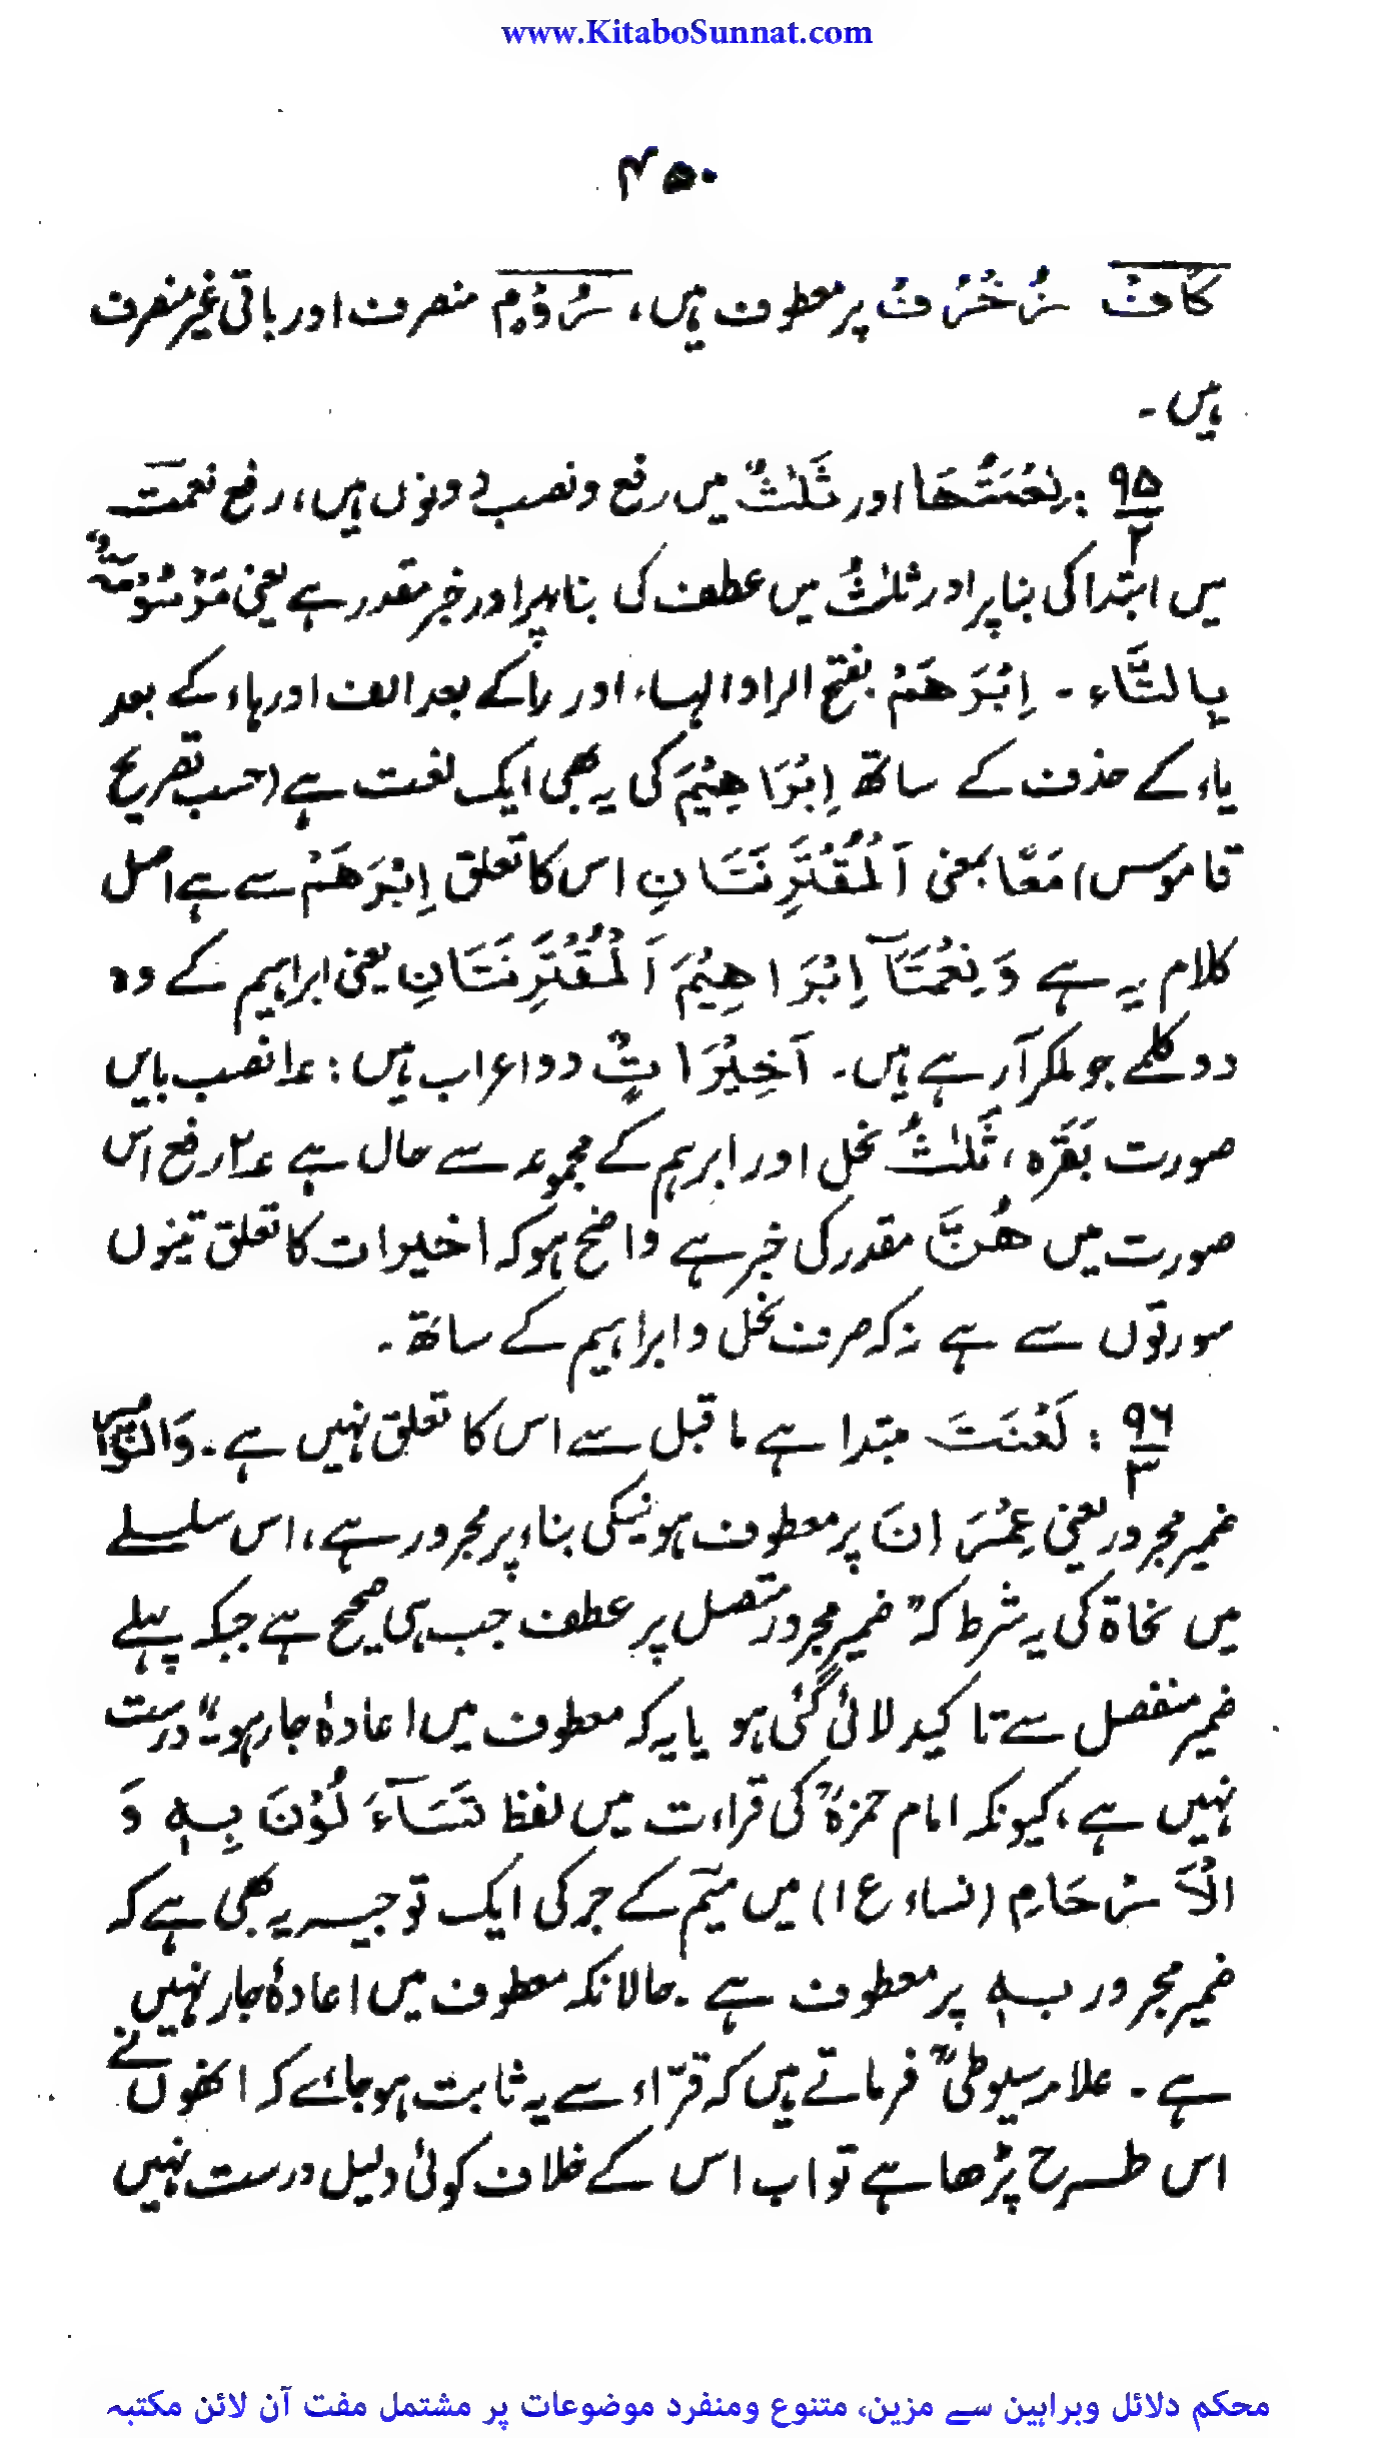 www.KitaboSunnat.com
۴۵۰
كَافُ زُخْرُفُ پر معطوف ہیں، رُوْمٍ منصرف اور باقی غیر منصرف
ہیں۔
۹۵/۲ : نِعْمَتُهَا اور ثَلٰثٌ میں رفع و نصب دونوں ہیں، رفع نعمت
میں ابتدا کی بنا پر اور ثلٰثٌ میں عطف کی بناء پر اور خبر مقدر ہے یعنی مَرْسُوْمَةٌ
بِالتَّاء ۔ اِبْرَهَمْ بفتح الرا والہاء، اور را کے بعد الف اور ہاء کے بعد
یاء کے حذف کے ساتھ اِبْرَاهِيْمَ کی یہ بھی ایک لغت ہے (حسب تصریح
قاموس) مَعًا بمعنی اَلْمُقْتَرِنَتَانِ اس کا تعلق اِبْرَهَمْ سے ہے اصل
کلام یہ ہے وَنِعْمَتَآ اِبْرَاهِيْمَ اَلْمُقْتَرِنَتَانِ یعنی ابراہیم کے وہ
دو کلمے جو ملکر آرہے ہیں۔ اَخِيْرَاتٌ دو اعراب ہیں: ۱؎ نصب بایں
صورت بَقَرَہ، ثَلٰثٌ نحل اور ابرہم کے مجموعہ سے حال ہے ۲؎ رفع اس
صورت میں هُنَّ مقدر کی خبر ہے واضح ہو کہ اخیرات کا تعلق تینوں
سورتوں سے ہے نہ کہ صرف نحل و ابراہیم کے ساتھ۔
۹۶/۳ : لَعْنَتَ مبتدا ہے ماقبل سے اس کا تعلق نہیں ہے۔ وَالنُّوْرِ
ضمیر مجرور یعنی عِمْرَانَ پر معطوف ہونیکی بناء پر مجرور ہے، اس سلسلے
میں نحاۃ کی یہ شرط کہ "ضمیر مجرور متصل پر عطف جب ہی صحیح ہے جبکہ پہلے
ضمیر منفصل سے تاکید لائی گئی ہو یا یہ کہ معطوف میں اعادۂ جار ہو۔" درست
نہیں ہے، کیونکہ امام حمزہؒ کی قراءت میں لفظ تَسَآءَلُوْنَ بِهٖ وَ
الْاَرْحَامِ (نساء ع ۱) میں میم کے جر کی ایک توجیہ یہ بھی ہے کہ
ضمیر مجرور بہٖ پر معطوف ہے۔ حالانکہ معطوف میں اعادۂ جار نہیں
ہے۔ علامہ سیوطیؒ فرماتے ہیں کہ قرّاء سے یہ ثابت ہو جائے کہ انھوں نے
اس طرح پڑھا ہے تو اب اس کے خلاف کوئی دلیل درست نہیں
محکم دلائل وبراہین سے مزین، متنوع ومنفرد موضوعات پر مشتمل مفت آن لائن مکتبہ